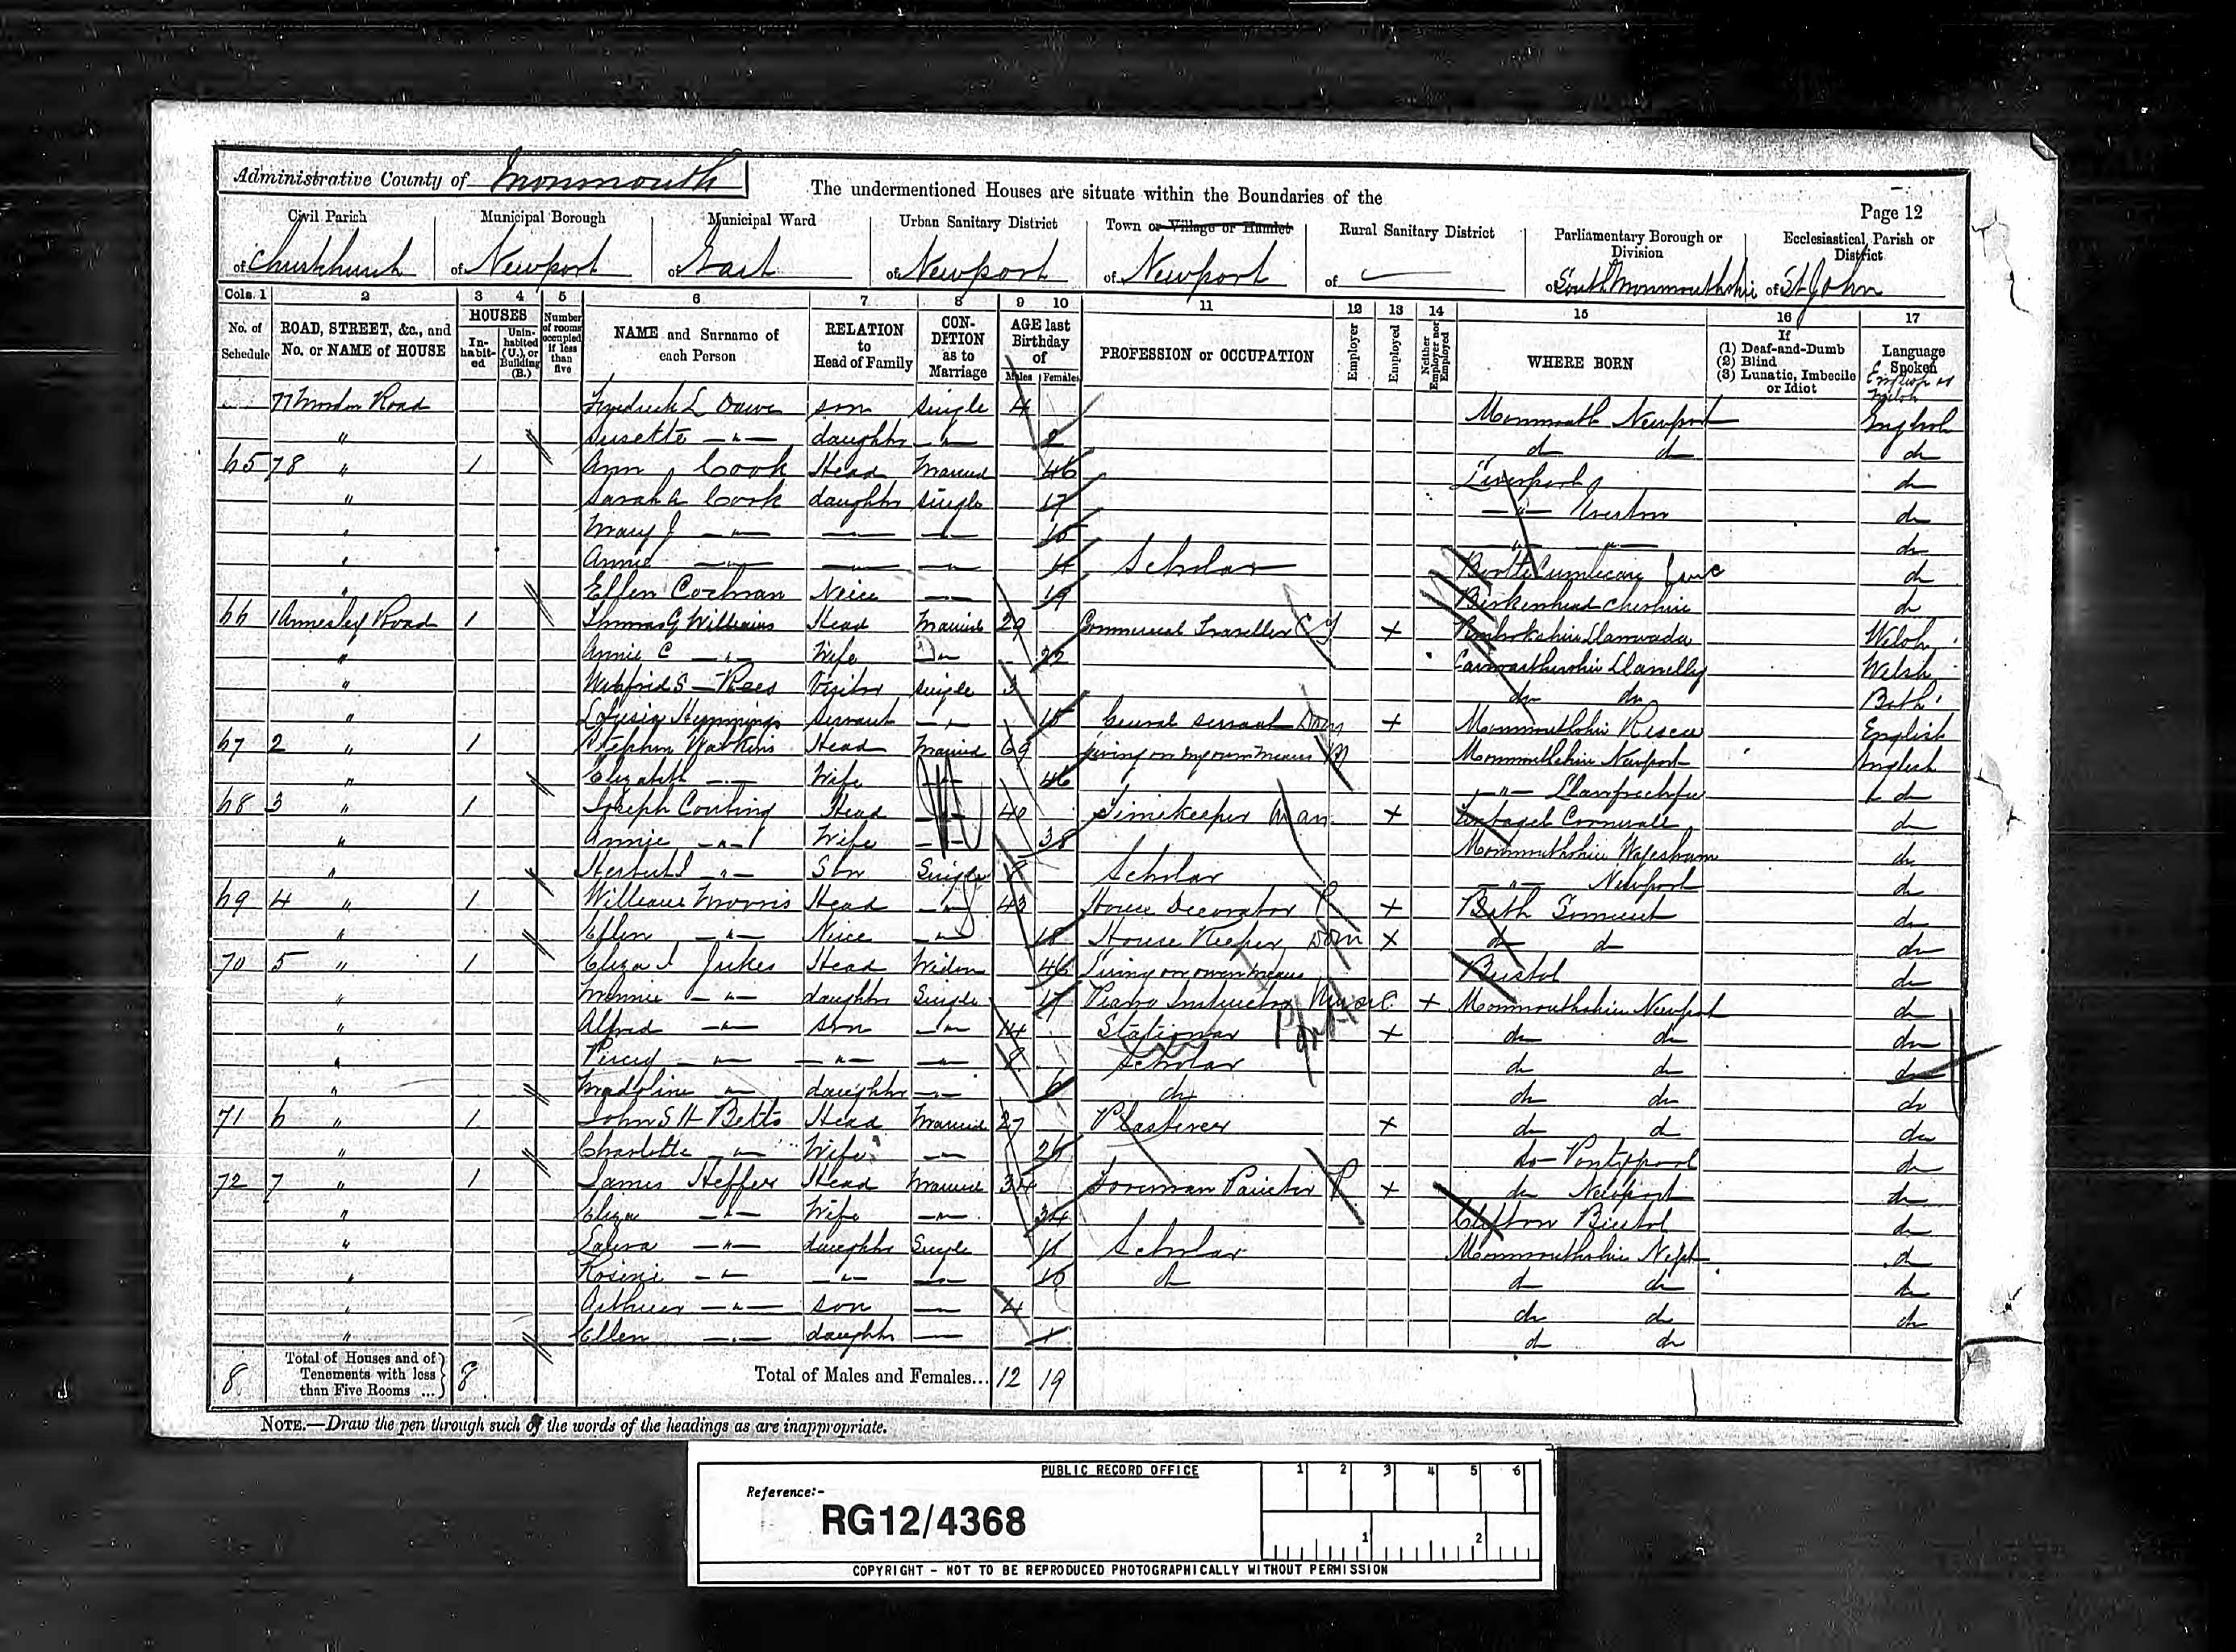 Administrative County of Monmouth
The undermentioned Houses are situate within the Boundaries of the
Page 12
Civil Parish of Christchurch
Municipal Borough of Newport
Municipal Ward of East
Urban Sanitary District of Newport
Town or Village or Hamlet of Newport
Rural Sanitary District of —
Parliamentary Borough or Division of South Monmouthshire
Ecclesiastical Parish or District of St John
Cols. 1 2 3 4 5 6 7 8 9 10 11 12 13 14 15 16 17
No. of Schedule
ROAD, STREET, &c., and No. or NAME of HOUSE
HOUSES
Inhabited
Uninhabited (U.), or Building (B.)
Number of rooms occupied if less than five
NAME and Surname of each Person
RELATION to Head of Family
CONDITION as to Marriage
AGE last Birthday of
Males Females
PROFESSION or OCCUPATION
Employer
Employed
Neither Employer nor Employed
WHERE BORN
If
(1) Deaf-and-Dumb
(2) Blind
(3) Lunatic, Imbecile or Idiot
Language Spoken
77 Road Fredrick L Dawe son single 4 Monmouth Newport English
" Susette -"- daughter -"- 2 do do do
65 78 " 1 Ann Cook Head Married 46 Liverpool do
" Sarah A Cook daughter single 17 -"- Everton do
" Mary J -"- — -"- 15 -"- -"- do
" Annie -"- — -"- 11 Scholar Bootle do
" Ellen Cochran Neice — 19 Birkenhead Cheshire do
66 1 Annesley Road 1 Thomas G Williams Head Married 29 Commercial Traveller X Welsh
" Annie C -"- Wife Do 22 Carmarthenshire Llanelly Welsh
" S Rees Visitor single 3 do do Both
" Hemmings Servant -"- 15 General Servant Dom X Monmouthshire Risca English
67 2 " 1 Stephen Watkins Head Married 69 Living on my own means Monmouthshire Newport English
" Elizabeth -"- Wife -"- 46 -"- do
68 3 " 1 Joseph Head -"- 40 Timekeeper Man X Cornwall do
" Annie -"- Wife -"- 38 Monmouthshire do
" Herbert J -"- Son Single 8 Scholar -"- Newport do
69 4 " 1 William Morris Head -"- 43 House Decorator X Bath Somerset do
" Ellen -"- Neice -"- 18 House Keeper Dom X do do do
70 5 " 1 Eliza J Jukes Head Widow 46 Living on own means Bristol do
" Minnie -"- daughter Single 17 Piano Instructor Music X Monmouthshire Newport do
" Alfred -"- son -"- 14 Stationer X do do do
" Percy -"- -"- -"- 8 Scholar do do do
" Madoline -"- daughter -"- 6 do do do do
71 6 " 1 John S H Betts Head Married 27 Plasterer X do do do
" Charlotte -"- Wife -"- 25 do Pontypool do
72 7 " 1 James Heffer Head Married 34 Foreman Painter X do Newport do
" Eliza -"- Wife -"- 34 Clifton Bristol do
" Laura -"- daughter Single 11 Scholar Monmouthshire Npt do
" Rosini -"- -"- -"- 10 do do do do
" Arthur -"- son — 4 do do do
" Ellen -"- daughter — 1 do do
8 Total of Houses and of Tenements with less than Five Rooms ... 8 Total of Males and Females... 12 19
NOTE.—Draw the pen through such of the words of the headings as are inappropriate.
PUBLIC RECORD OFFICE
1 2 3 4 5 6
Reference:-
RG12/4368
1 2
COPYRIGHT - NOT TO BE REPRODUCED PHOTOGRAPHICALLY WITHOUT PERMISSION